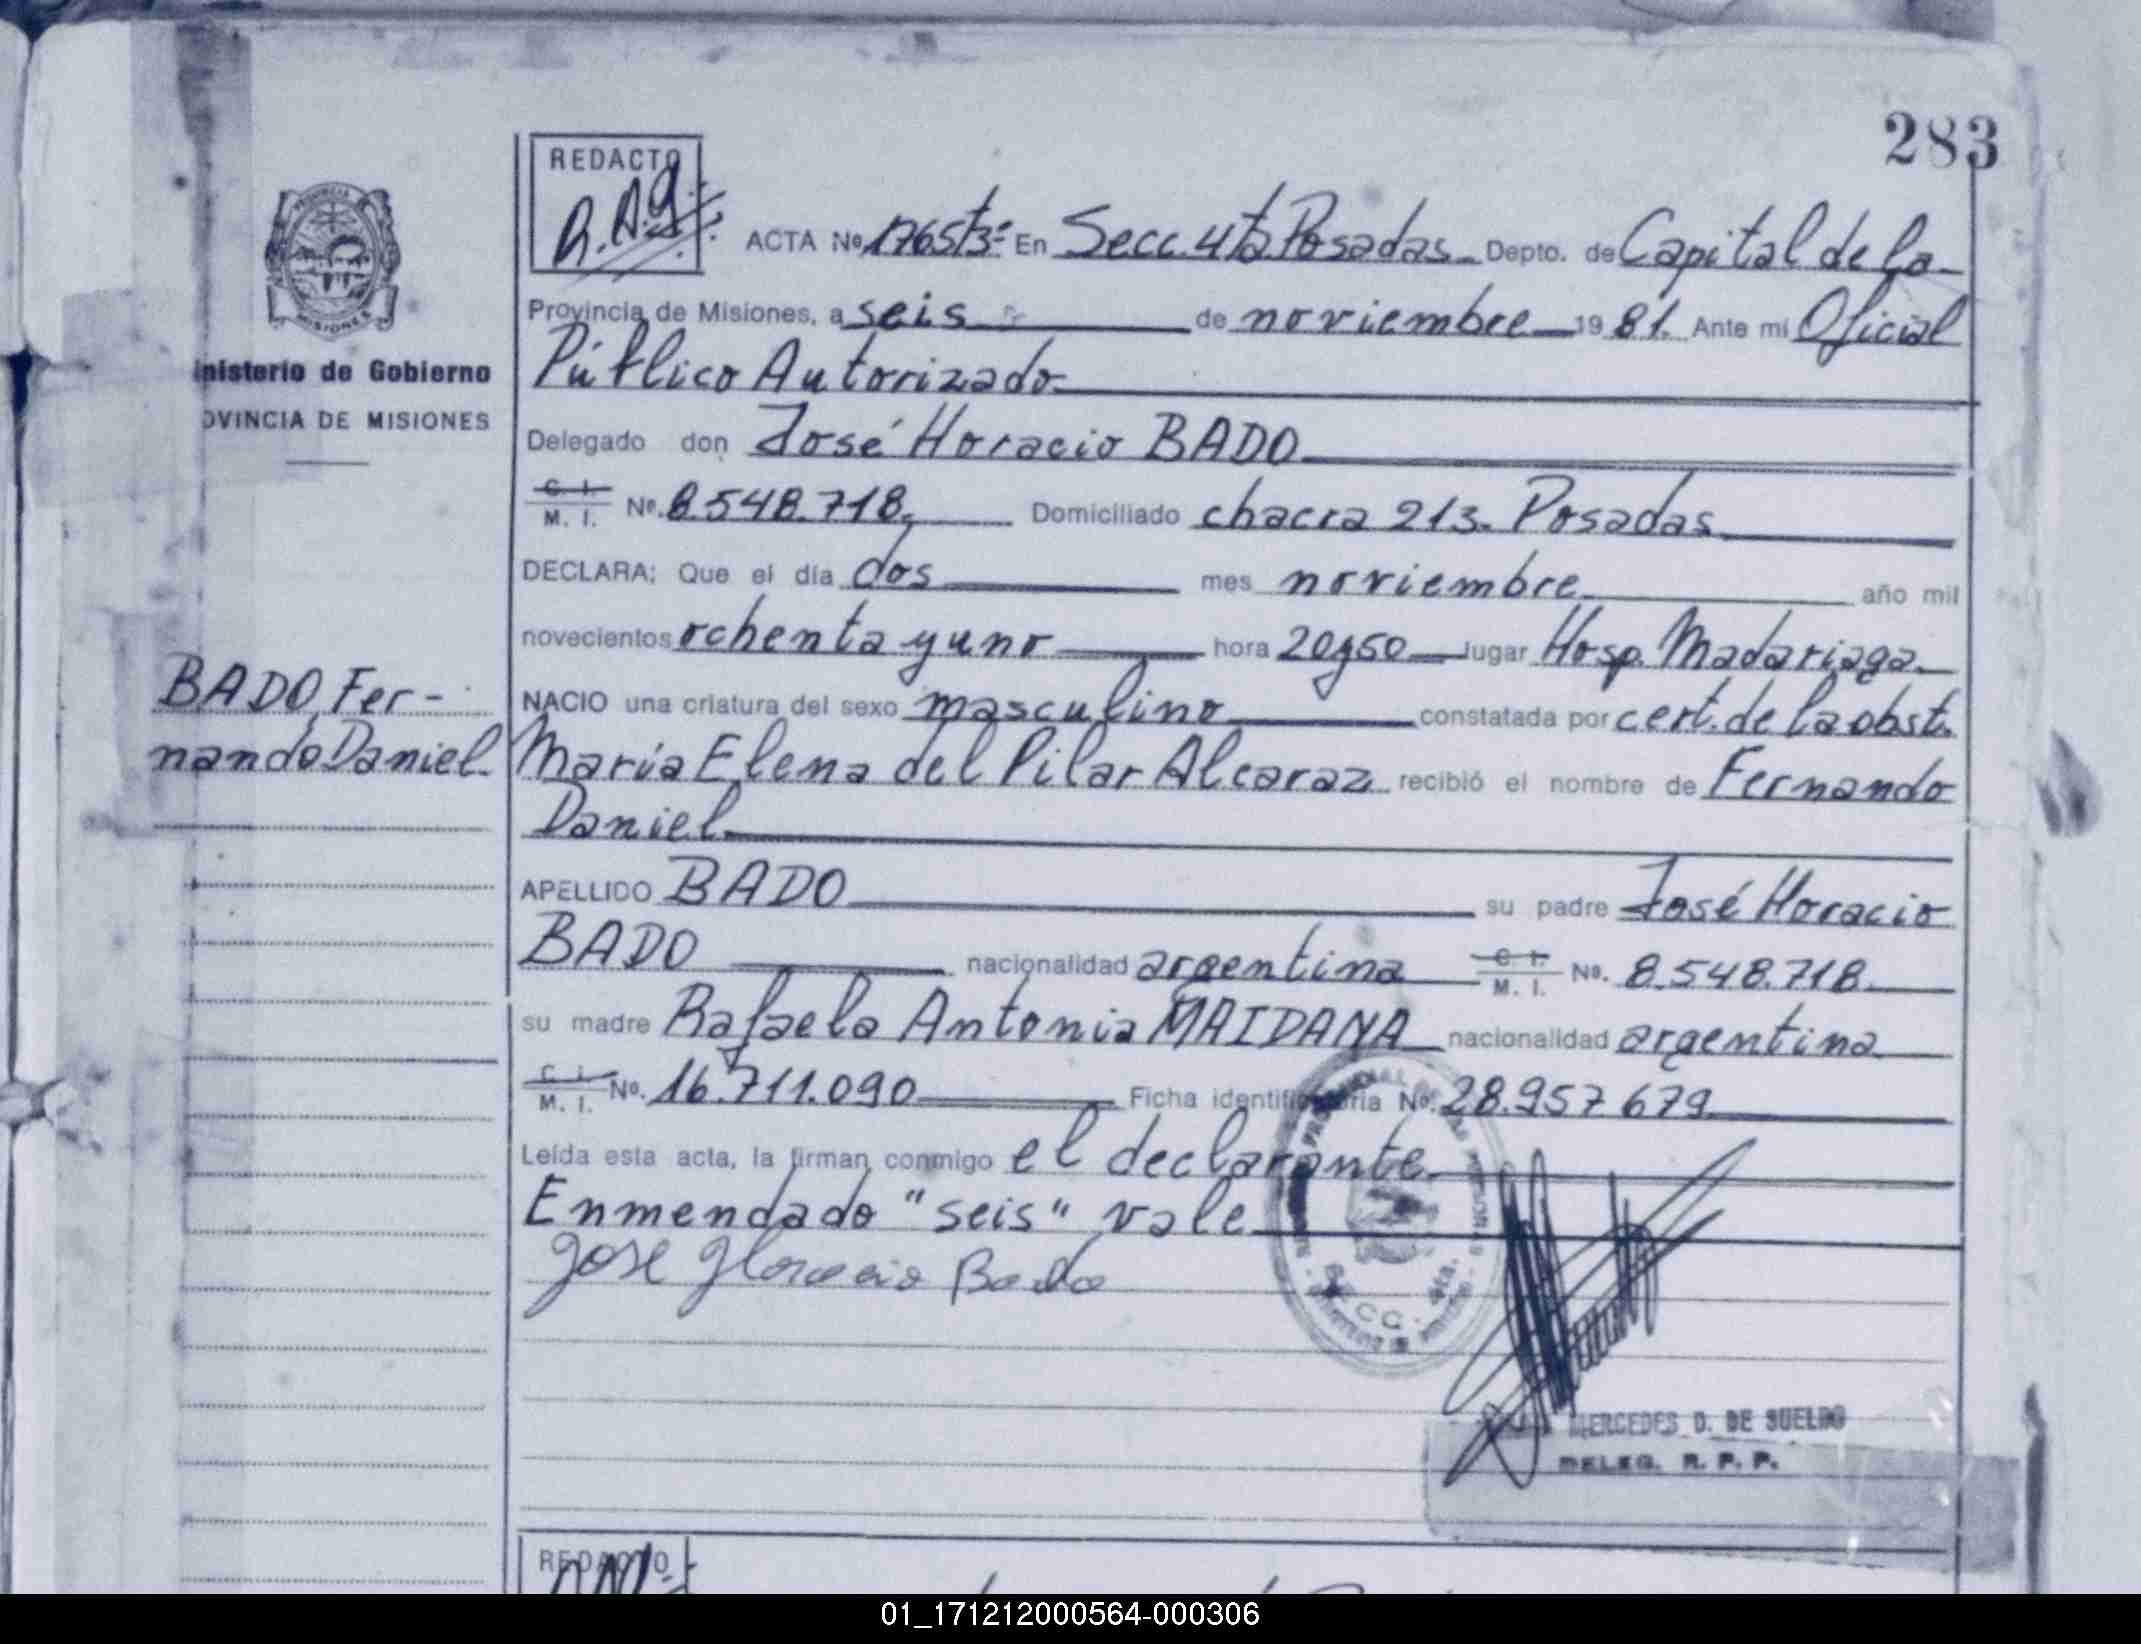 283
REDACTO
R.A.G.
PROVINCIA
MISIONES
ACTA Nº 1765/3ª En Secc. 4ta Posadas Depto. de Capital de la
Provincia de Misiones, a seis de noviembre 19 81. Ante mí Oficial
nisterio de Gobierno
Público Autorizado
OVINCIA DE MISIONES
Delegado don José Horacio BADO
C. I. M. I. Nº. 8.548.718, Domiciliado chacra 213. Posadas
DECLARA: Que el día dos mes noviembre año mil
novecientos ochenta y uno hora 20y50 lugar Hosp. Madariaga
BADO, Fer-
NACIO una criatura del sexo masculino constatada por cert. de la obst.
nando Daniel.
María Elena del Pilar Alcaraz recibió el nombre de Fernando
Daniel
APELLIDO BADO su padre José Horacio
BADO nacionalidad argentina C. I. M. I. Nº. 8.548.718
su madre Rafaela Antonia MAIDANA nacionalidad argentina
C. I. M. I. Nº. 16.711.090 Ficha identificatoria Nº. 28.957679
Leída esta acta, la firman conmigo el declarante.
Enmendado "seis" vale
José Horacio Bado
SECC. 4ta.
MERCEDES D. DE SUELDO
DELEG. R. P. P.
REDACTO
01_171212000564-000306